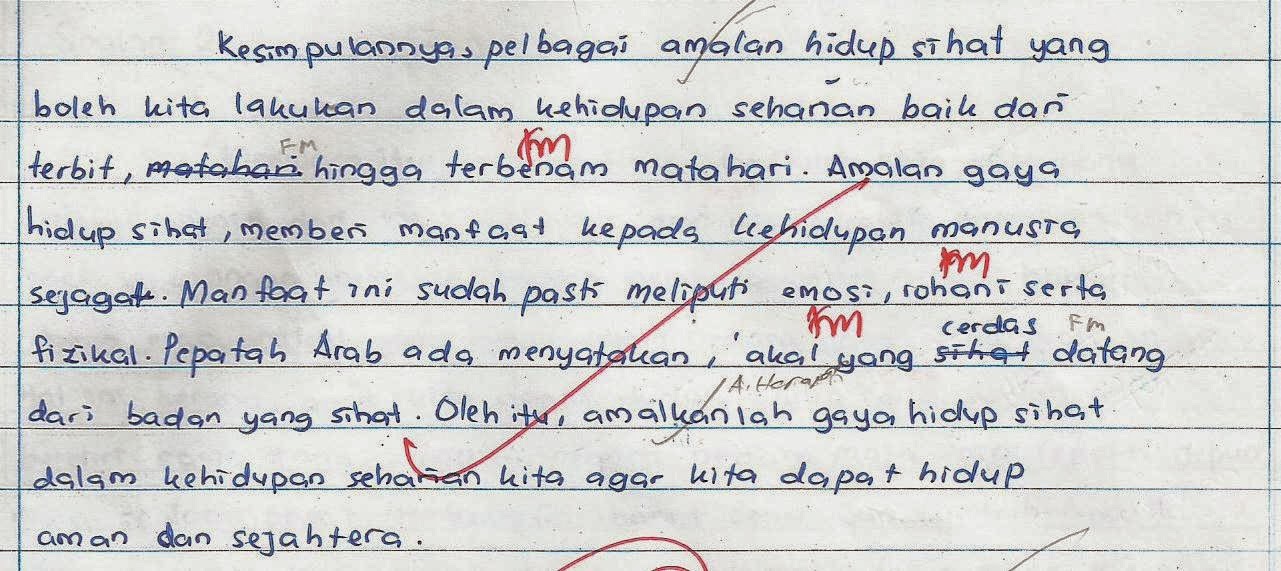 Kesimpulannya, pelbagai amalan hidup sihat yang
boleh kita lakukan dalam kehidupan seharian baik dari
FM FM
terbit, matahari hingga terbenam matahari. Amalan gaya
hidup sihat, memberi manfaat kepada kehidupan manusia
FM
sejagat. Manfaat ini sudah pasti meliputi emosi, rohani serta
FM cerdas FM
fizikal. Pepatah Arab ada menyatakan, 'akal yang sihat datang
A. Harapan
dari badan yang sihat. Oleh itu, amalkanlah gaya hidup sihat
dalam kehidupan seharian kita agar kita dapat hidup
aman dan sejahtera.